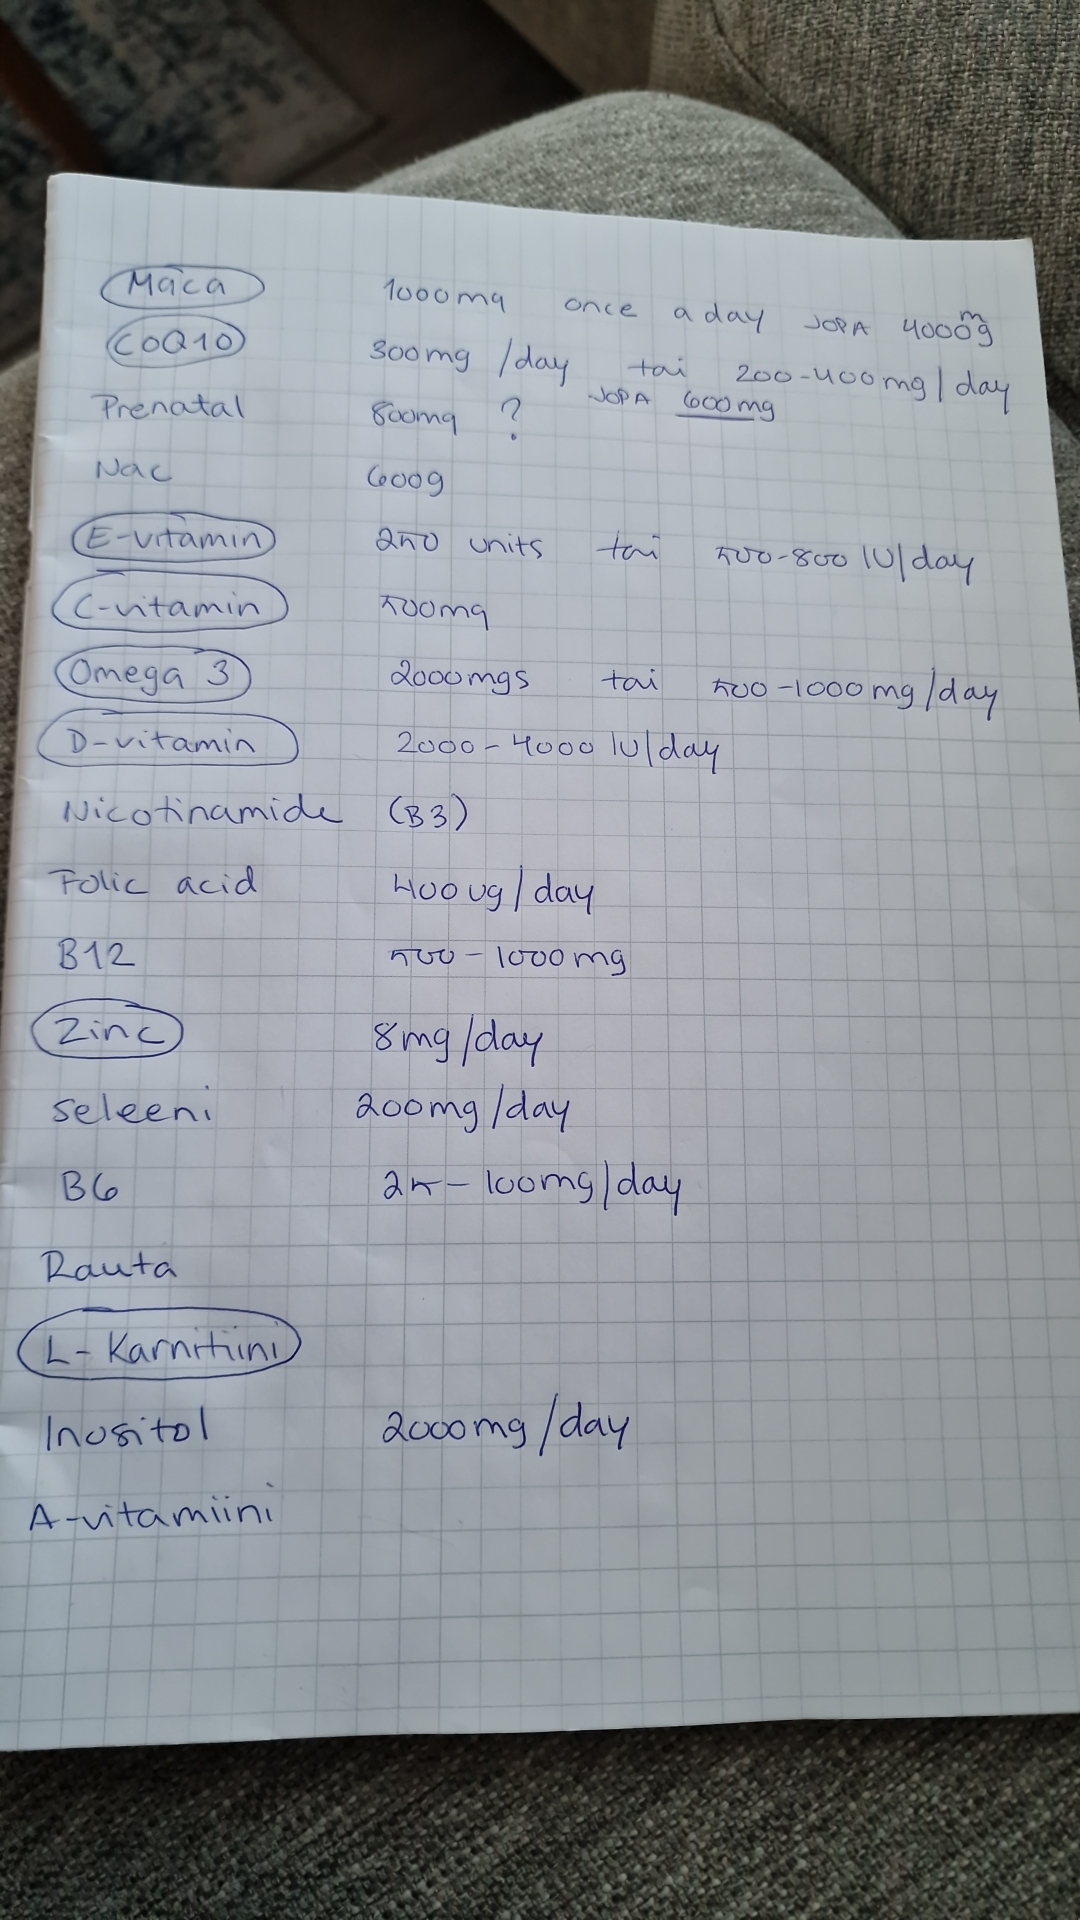 Maca 1000mg once a day JOPA 4000mg
COQ10 300mg /day tai 200-400mg/day
JOPA 600mg
Prenatal 800mg ?
Nac 600g
E-vitamin 250 units tai 500-800 IU/day
C-vitamin 500mg
Omega 3 2000mgs tai 500-1000mg/day
D-vitamin 2000-4000 IU/day
Nicotinamide (B3)
Folic acid 400ug/day
B12 500-1000mg
Zinc 8mg/day
Seleeni 200mg/day
B6 25-100mg/day
Rauta
L-Karnitiini
Inositol 2000mg/day
A-vitamiini